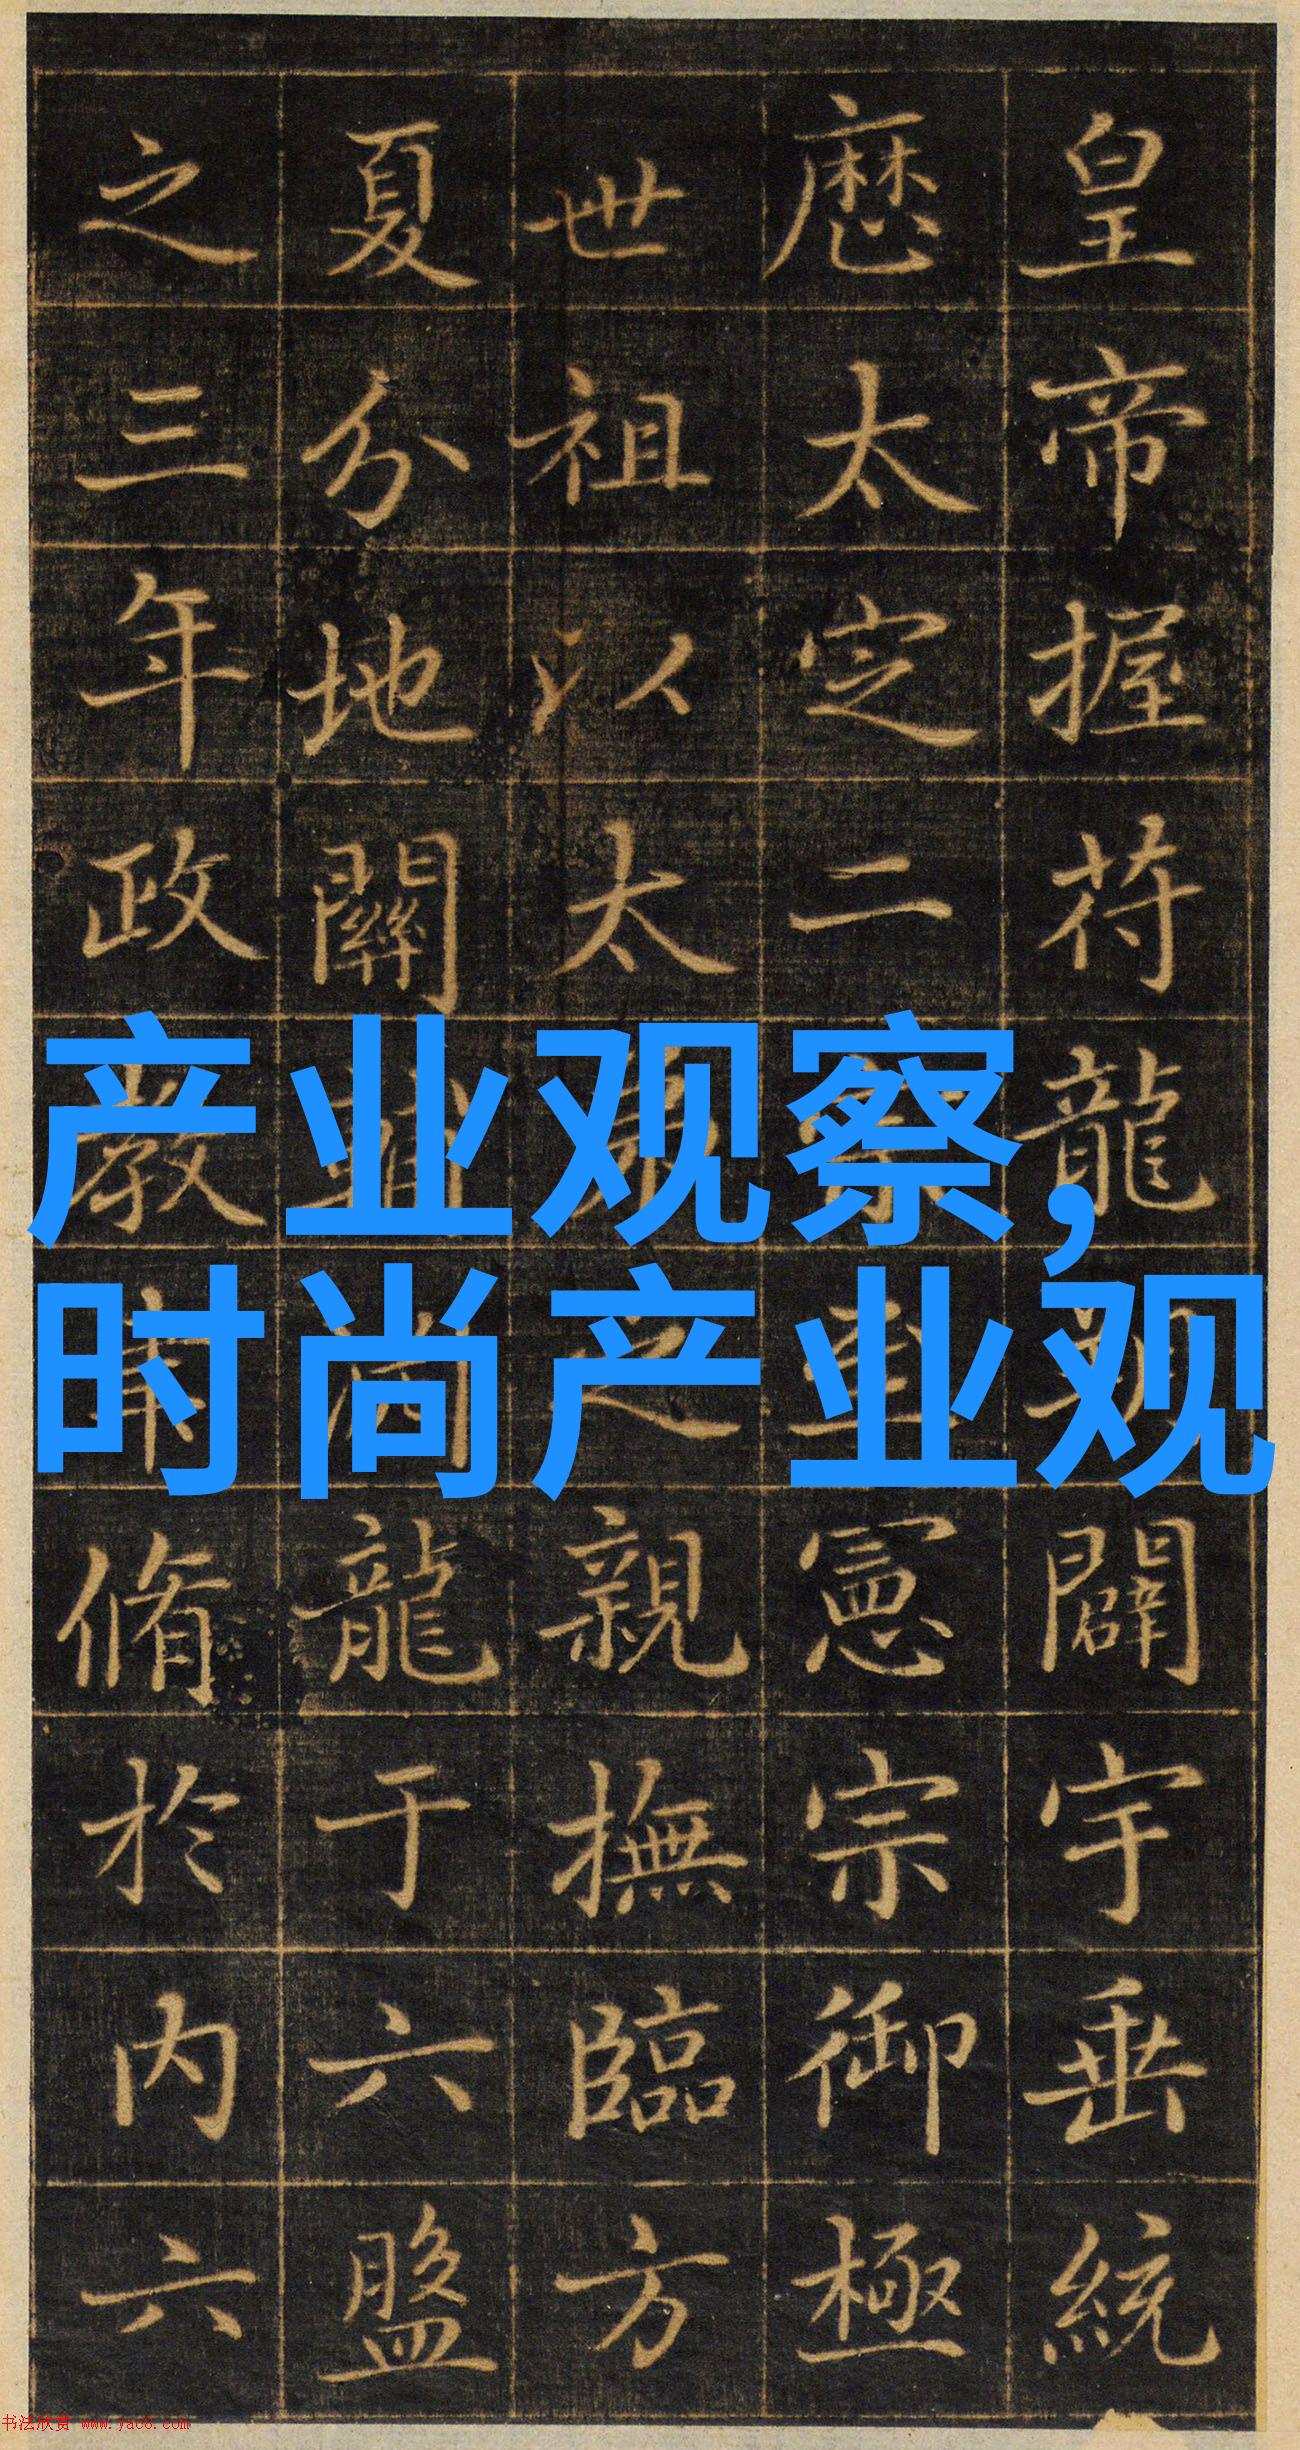 皇帝握符龍闢宇垂統
厯太定二憲宗御極
世祖以太之親撫臨方
夏分地關龍于六盤
之三年政教脩於内六
产业观察,
时尚产业观
书法欣赏 www.yac8.com